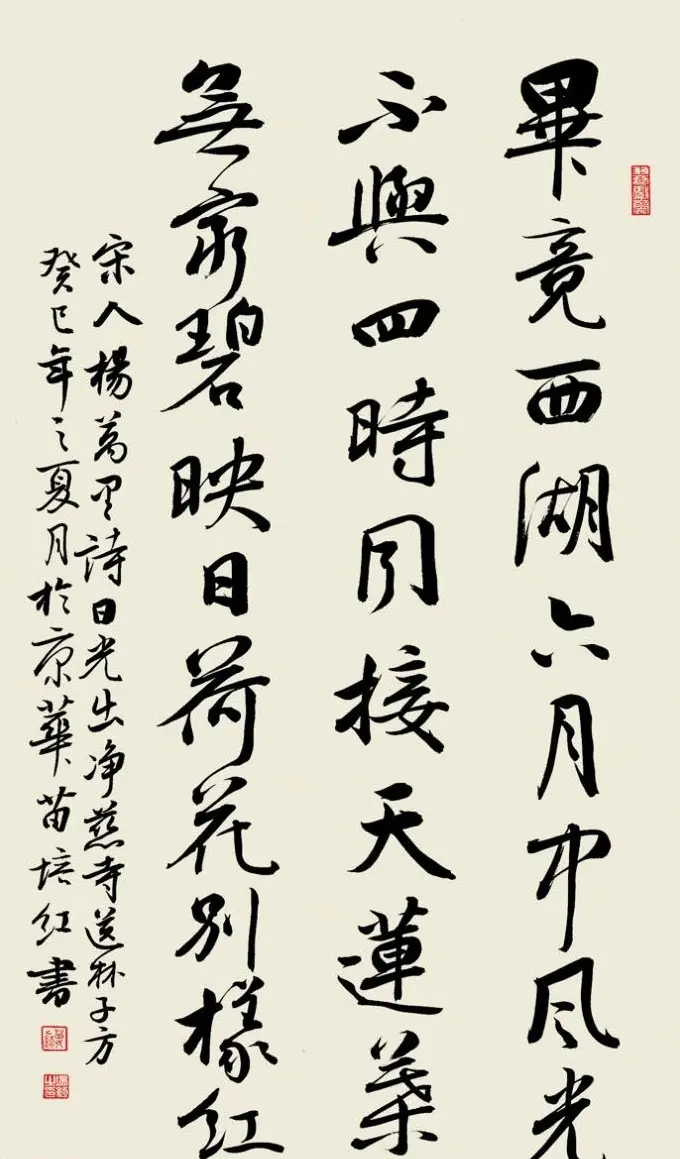 畢竟西湖六月中風光
不與四時同接天蓮葉
無窮碧映日荷花別樣紅
宋人楊萬里詩日光出净慈寺送林子方
癸巳年之夏月於京華苗培紅書